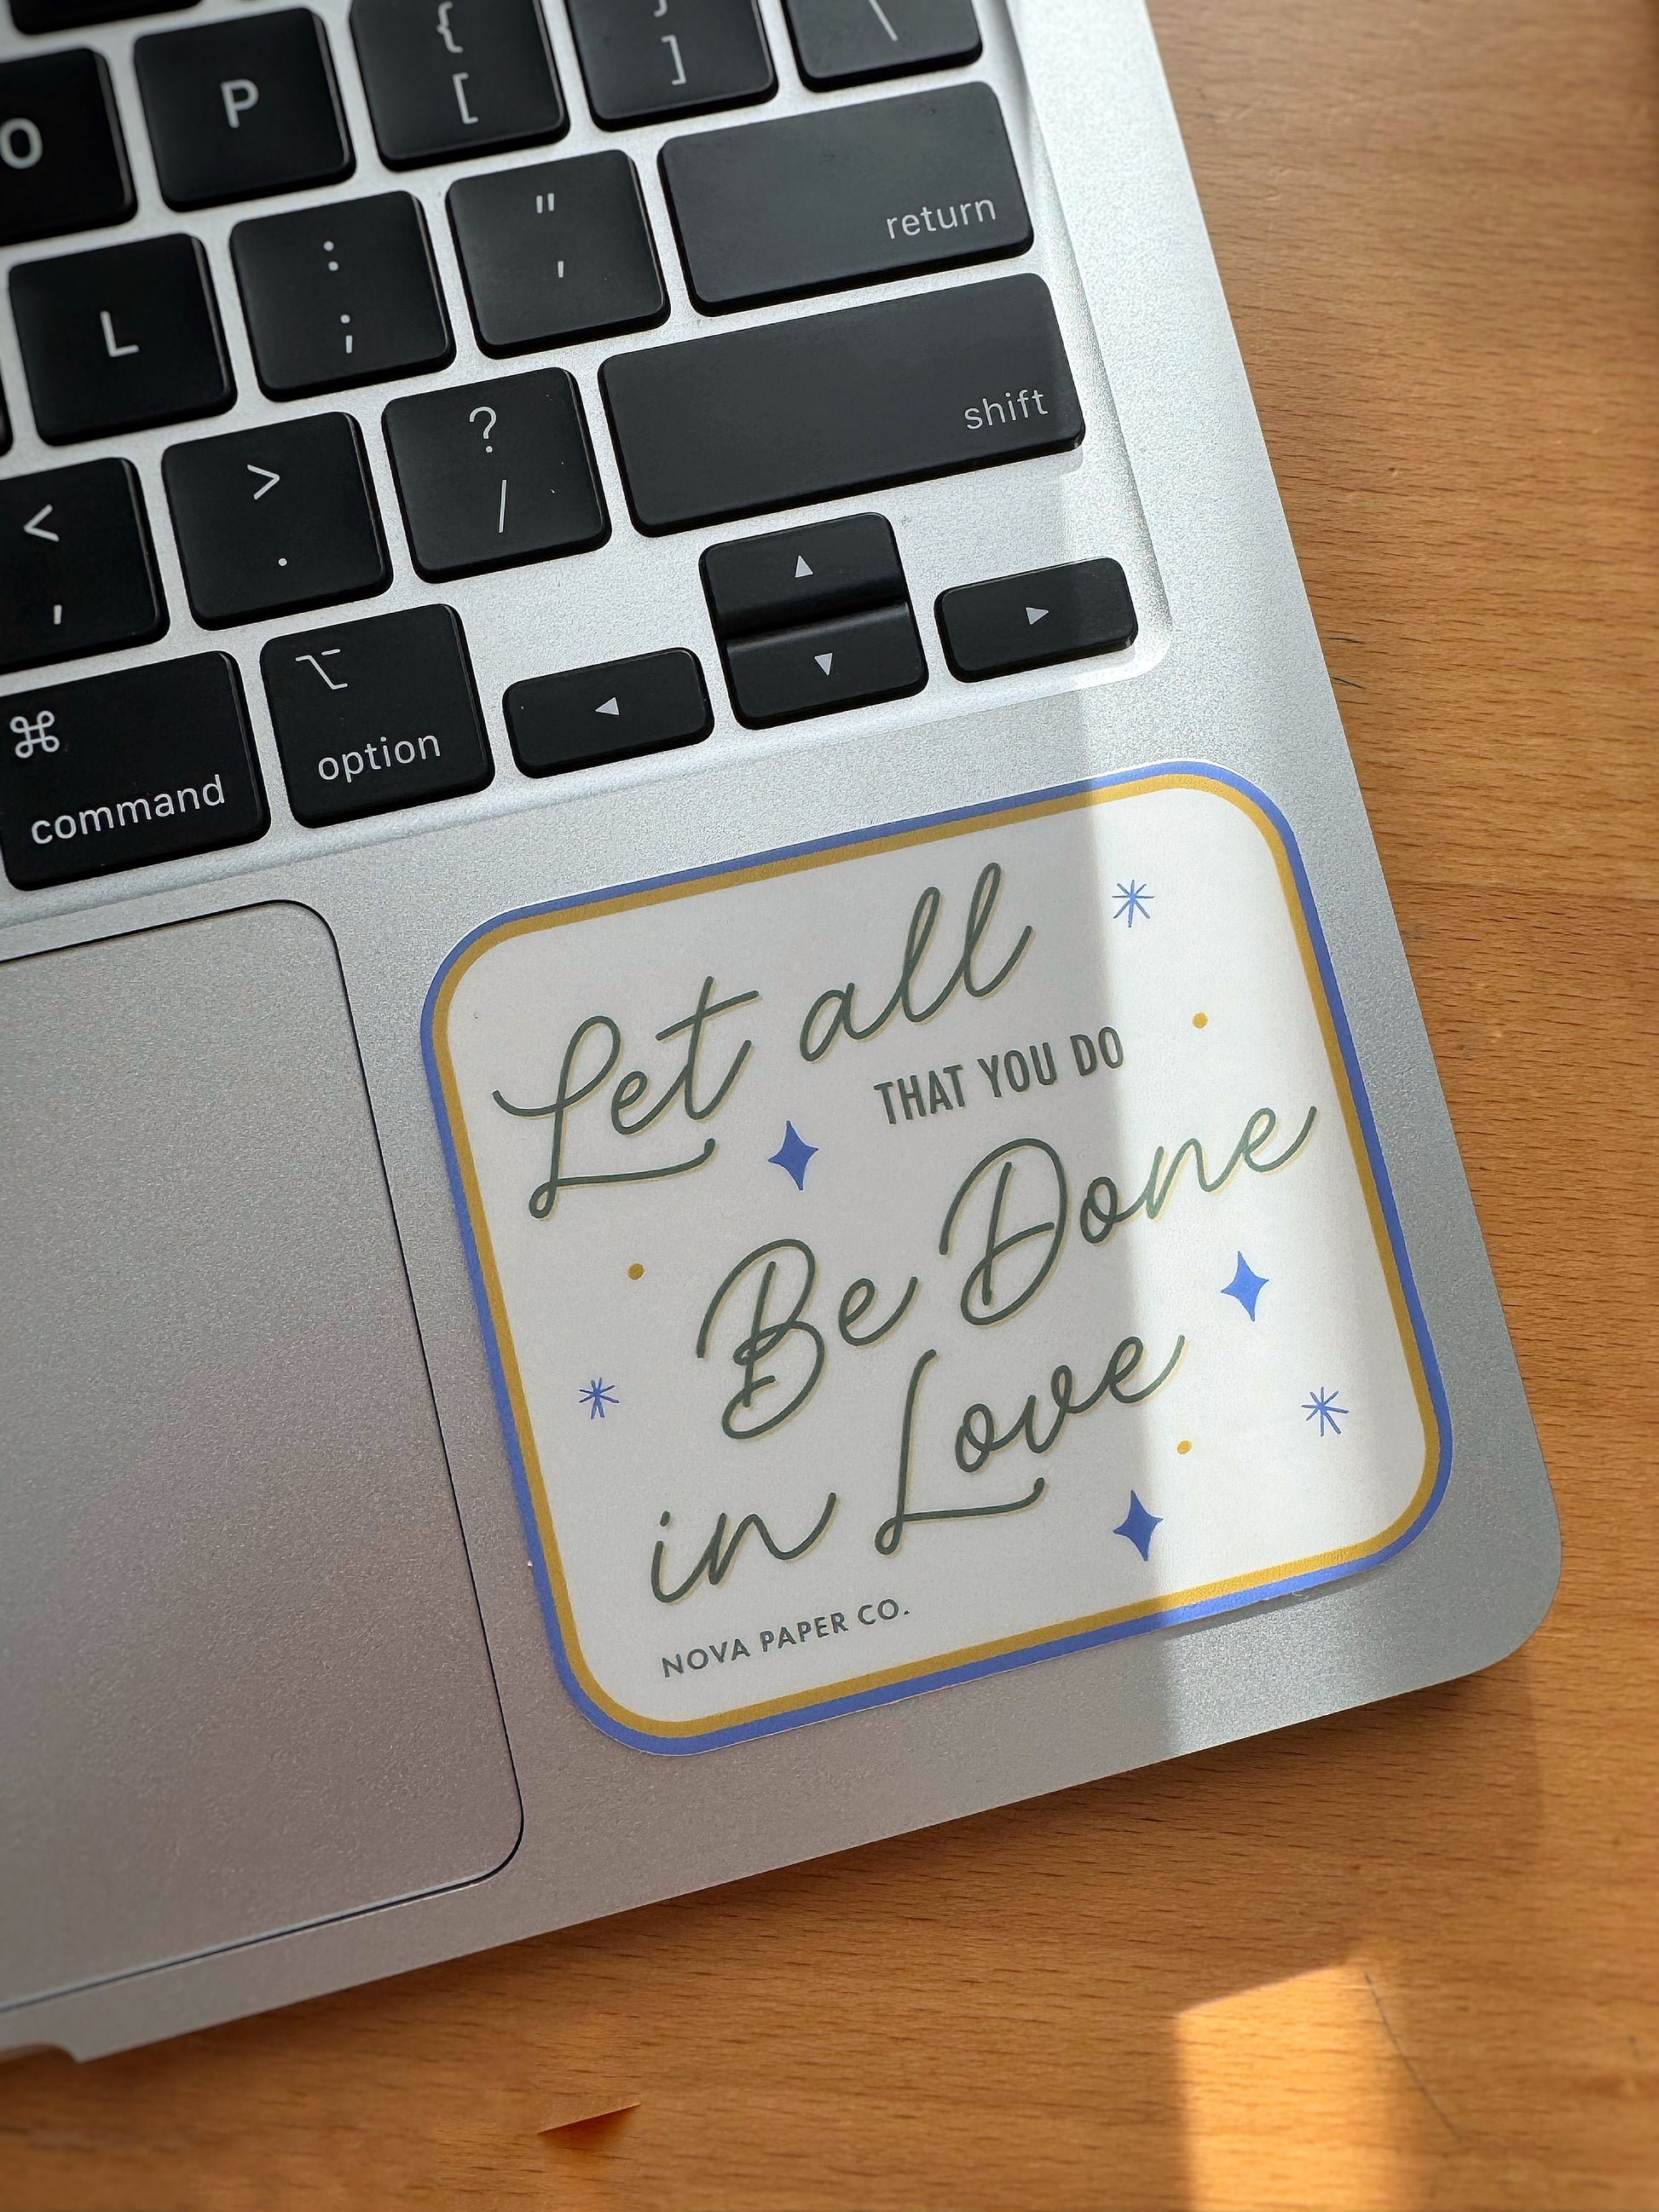 {
[
}
]
\
O
P
return
L
:
;
"
'
shift
<
,
>
.
?
/
⌘
command
⌥
option
▲
◀
▼
▶
Let all
THAT YOU DO
Be Done
in Love
NOVA PAPER CO.